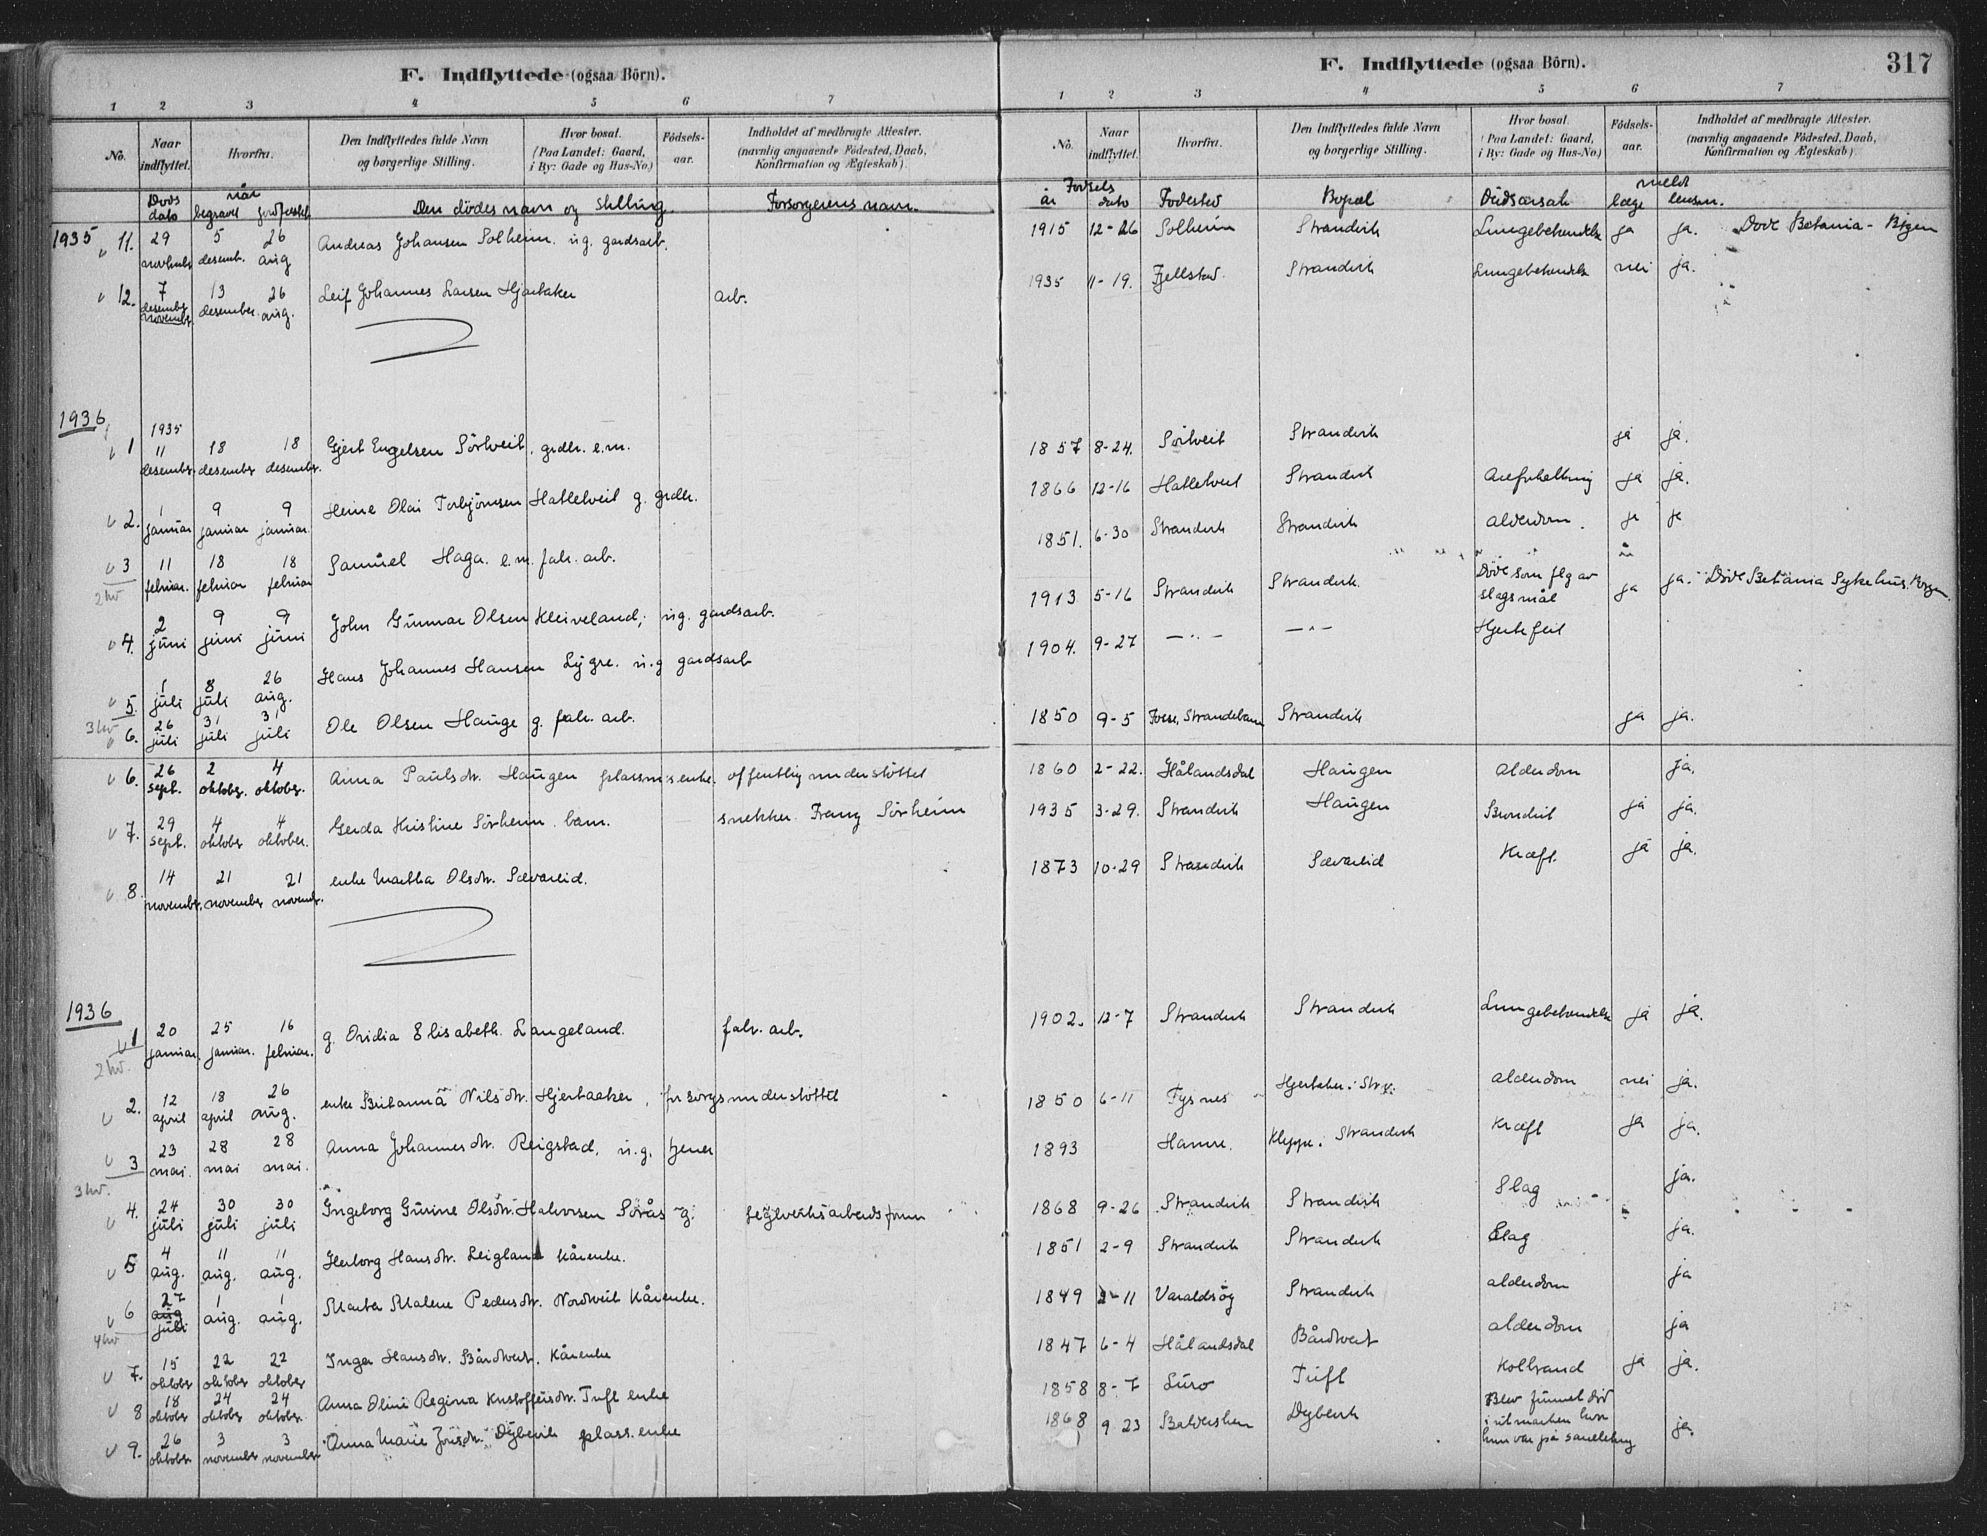 F. Indflyttede (ogsaa Börn).
1 2 3 4 5 6 7
No.
Naar indflyttet.
Hvorfra.
Den Indflyttedes fulde Navn og borgerlige Stilling.
Hvor bosat. (Paa Landet: Gaard, i By: Gade og Hus-No.)
Födsels-aar.
Indholdet af medbragte Attester. (navnlig angaaende Födested, Daab, Konfirmation og Ægteskab).
Døds dato
når begravet jordfestet
Den dödes navn og stilling.
Forsorgerens navn.
1935
11. 29 novbr. 5 desemb. 26 aug Andreas Johansen Solheim. ug. gardsarb.
12. 7 desembr november 13 desember 26 aug. Leif Johannes Larsen Hjartaker arb.
1936
1935
1 11 desembr 18 desembr 18 desembr. Gjert Engelsen Sörtveit, grdbr. e.m.
2. 1 januar 9 januar 9 januar. Heine Olai Torbjörnsen Hatletveit g. grdbr.
3 11 februar. 18 februar 18 februar Samuel Haga. e.m. fabr. arb.
2 hv
4. 2 juni 9 juni 9 juni John Gunnar Olsen Kleiveland, ug. gardsarb.
5. 1 juli 8 juli 26 aug. Hans Johannes Hansen Lygre. u.g gardsarb
3 hv
6. 26 juli 31 juli 31 juli Ole Olsen Hauge g. fabr. arb.
6. 26 sept. 2 oktober. 4 oktober. Anna Paulsdtr. Haugen plassm.s enke. offentlig understöttet
7. 29 sept. 4 oktober 4 oktober. Gerda Kristine Sörheim. barn. snekker Franz Sörheim
8. 14 november. 21 november 21 novembr. enke Martha Olsdtr. Sævareid.
1936
1 20 januar. 25 januar. 16 februar. g. Ovidia Elisabeth Langeland. fabr. arb.
2 hv.
2. 12 april 18 april 26 aug. enke Britanna Nilsdtr. Hjertaaker, forsorgsunderstöttet
3 23 mai. 28 mai 28 mai. Anna Johannesdtr. Reigstad, u.g. tjener
3 hv.
4. 24 juli 30 juli 30 juli Ingeborg Gurine Olsdtr. Halvorsen Sörås g. teglverksarbeids
5 4 aug. 11 aug. 11 aug. Herborg Hansdtr. Leigland kårenke.
6 27 aug juli 1 aug. 1 aug. Marta Malene Pedersdtr. Nordtveit Kårenke.
4 hv
7. 15 oktober 22 oktober 22 oktober Inger Hansdtr. Bårdtveit. Kårenke
8 18 oktober 24 oktober 24 oktober. Anna Oline Regina Kristoffersdtr. Tuft enke
9. 26 oktober 3 november 3 november. Anna Marie Dybevik plass. enke
F. Indflyttede (ogsaa Börn).
317
1 2 3 4 5 6 7
No.
Naar indflyttet.
Hvorfra.
Den Indflyttedes fulde Navn og borgerlige Stilling.
Hvor bosat. (Paa Landet: Gaard, i By: Gade og Hus-No.)
Födsels-aar.
Indholdet af medbragte Attester. (navnlig angaaende Födested, Daab, Konfirmation og Ægteskab).
Fødsels år dato
Fødested
Bopæl
Dödsårsak
meldt læge lensm.
1915 12-26 Solheim Strandvik Lungebetendelse ja ja. Døde Betania - Bergen
1935 11-19. Fjellstad. Strandvik Lungebetendelse nei ja.
1857 8-24. Sörtveit Strandvik ja ja.
1866 12-16 Hatletveit Strandvik ja ja.
1851. 6-30 Strandvik Strandvik alderdom. ja ja
1913 5-16 Strandvik Strandvik. Døde som flg av slagsmål ja ja. Døde Betania Sykehus. Bergen.
1904. 9-27 — " — — " — Hjertefeil
1850 9-5 Strandebarm Strandvik ja ja.
1860 2-22. Hålandsdal Haugen alderdom ja.
1935 3-29. Strandvik Haugen Bronchit ja ja.
1873 10-29 Strandvik Sævareid Kræft. ja ja.
1902. 12-7 Strandvik Strandvik Lungebetendelse ja ja.
1850 6-11 Tysnes Hjertaker. Strv. alderdom nei ja.
1893 Hamre. Kleppe. Strandvik Kræft ja ja.
1868 9-26 Strandvik Strandvik Slag ja.
1851 2-9 Strandvik Strandvik Slag ja.
1849 2-11 Varaldsöy Strandvik alderdom ja
1847 6-4 Hålandsdal Bårdtveit alderdom ja
1858 8-7 Luro Tuft Kolbrand ja ja.
1868 9-23 Dybevik Blev funnet död i utmarken hvor hun var på sauleting ja.